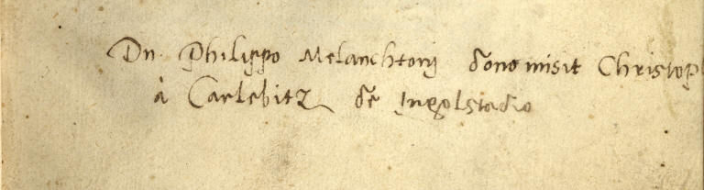 Dn. Philippo Melanchtonj dono misit Christoph
à Carlebitz de Ingolstadio